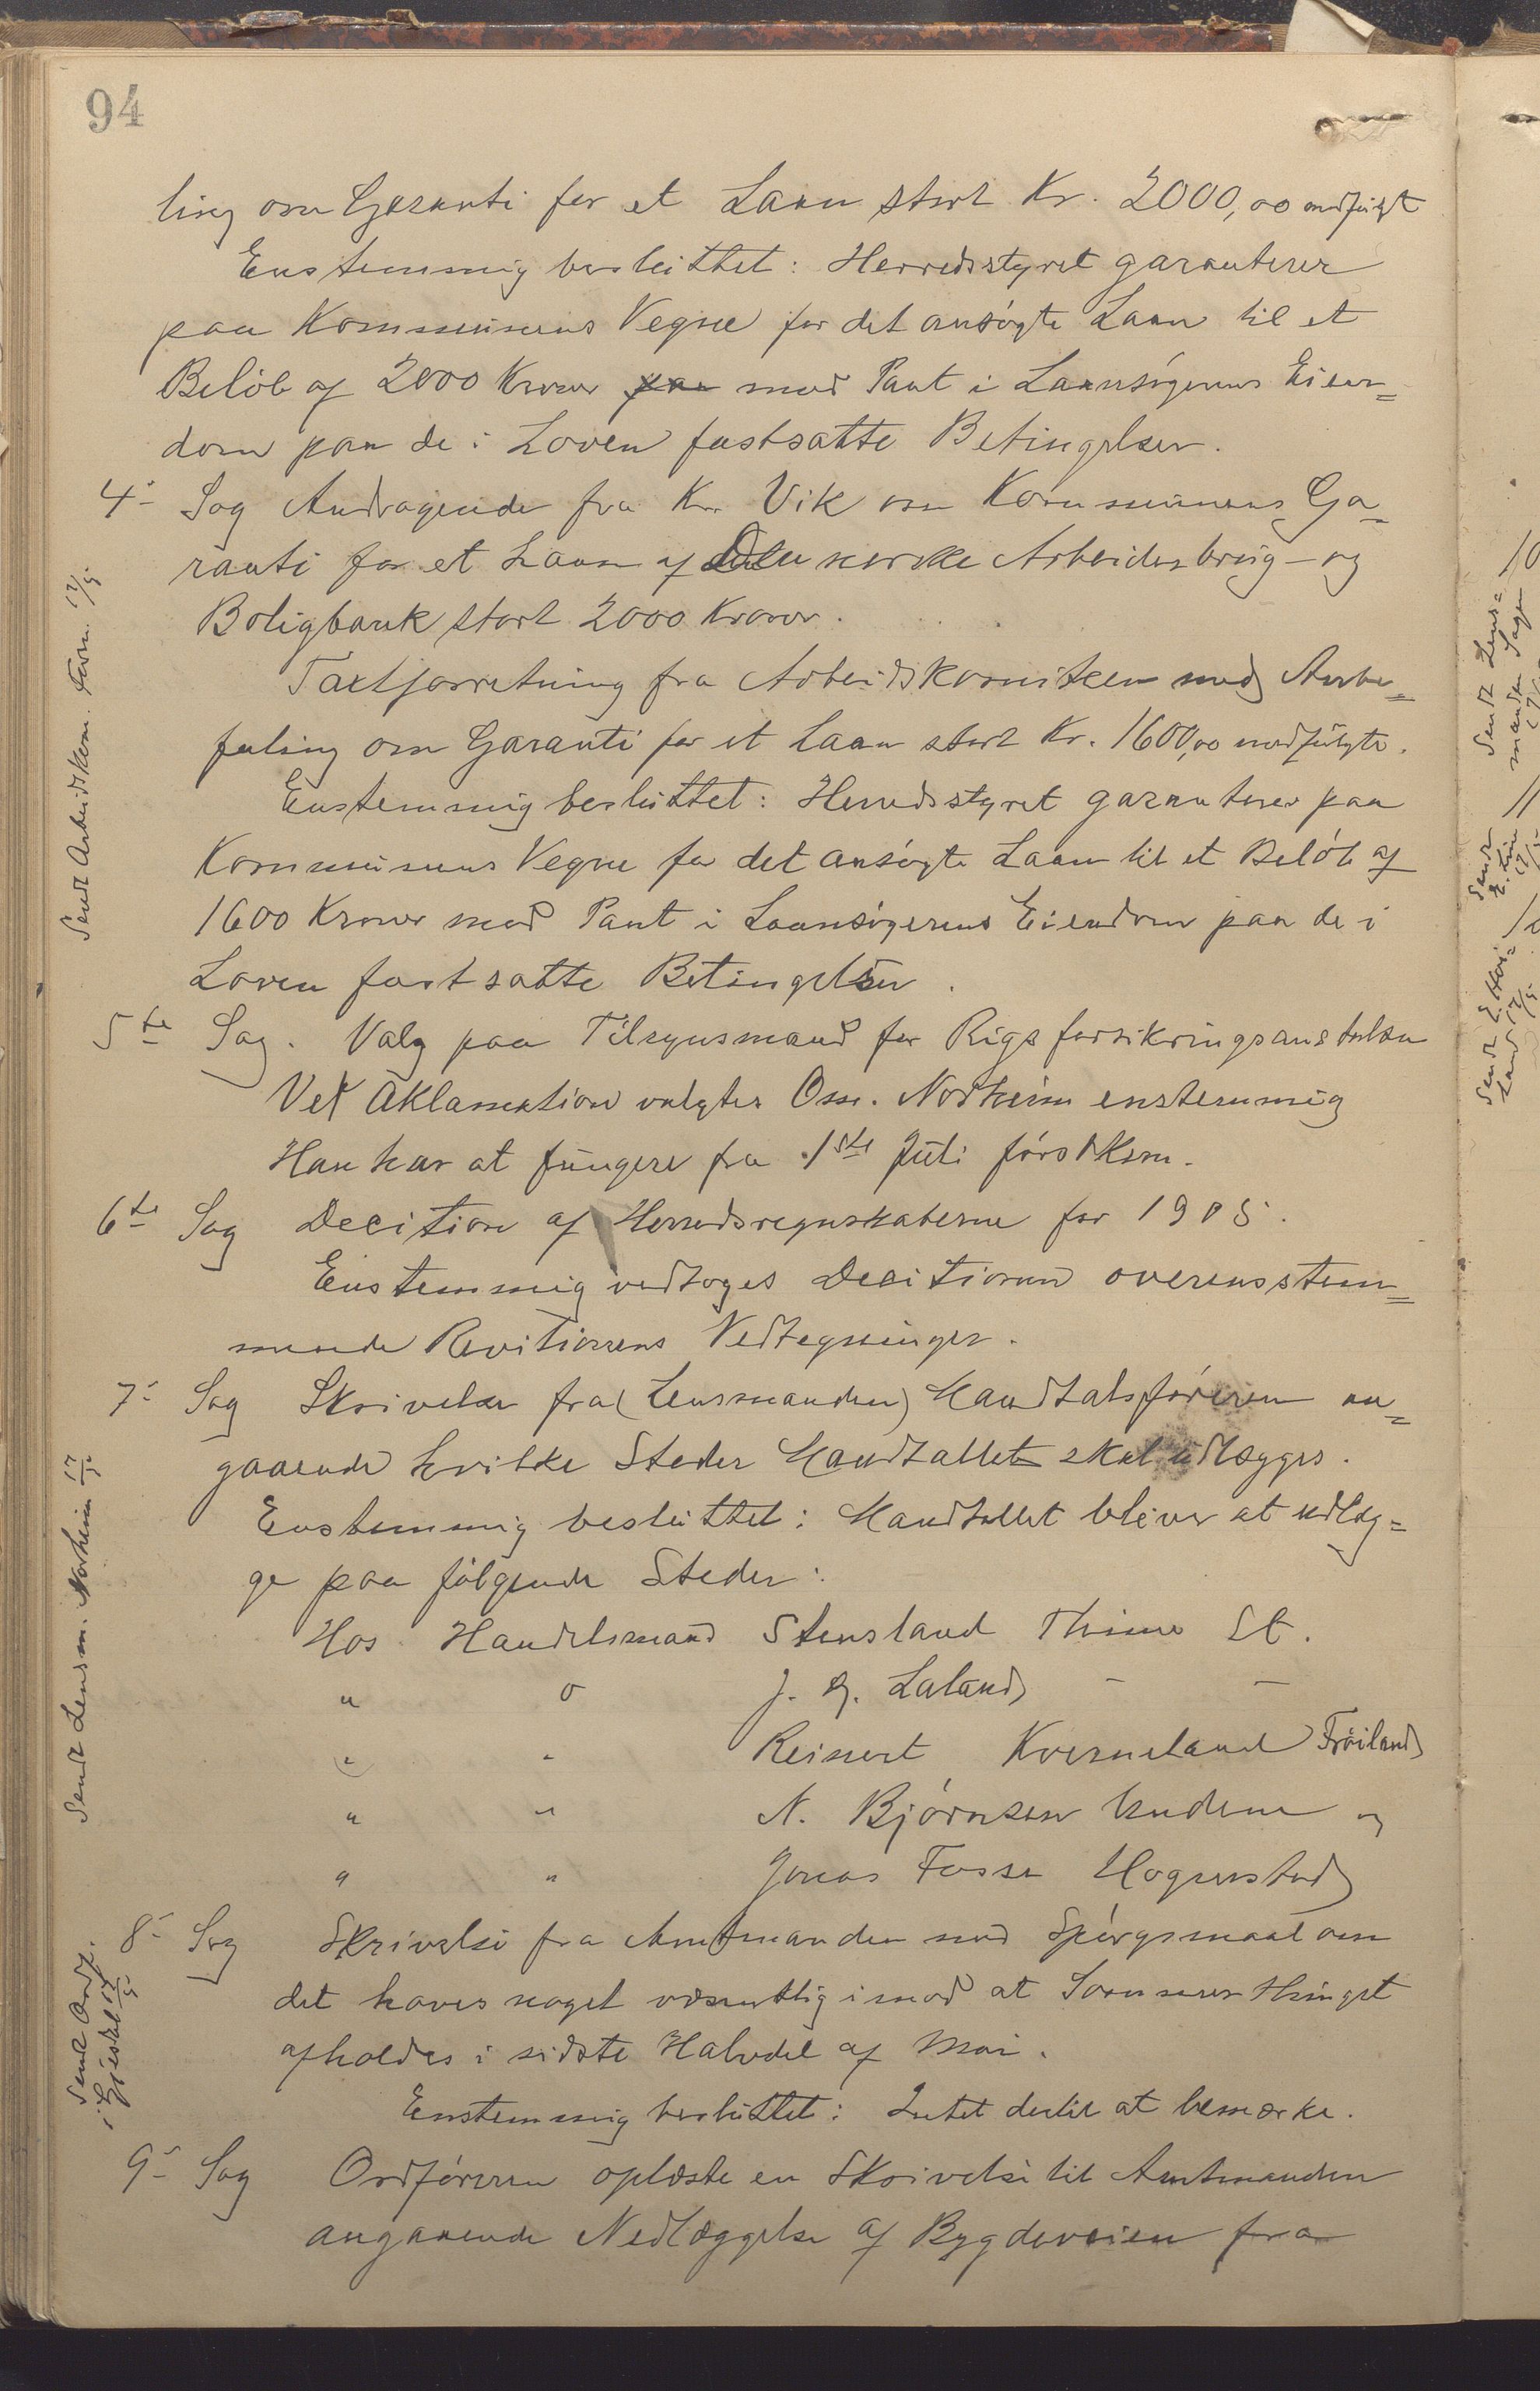 94
ling om Garanti for et Laan stort Kr. 2000,00 medfulgt
Enstemmig besluttet: Herredsstyret garanterer
paa Kommunens Vegne for det ansøgte Laan til et
Beløb af 2000 Kroner paa mod Pant i Laansøgerens Eien=
dom paa de i Loven fastsatte Betingelser.
4- Sag Andragende fra Kr. Vik om Kommunens Ga=
ranti for et Laan af Den norske Arbeiderbrug- og
Boligbank stort 2000 Kroner.
Taxtforretning fra Arbeidskomiteen med Anbe=
faling om Garanti for et Laan stort Kr. 1600,00 medfulgte.
Enstemmig besluttet: Herredsstyret garanterer paa
Kommunens Vegne for det ansøgte Laan til et Beløb af
1600 Kroner mod Pant i Laansøgerens Eiendom paa de i
Loven fastsatte Betingelser.
5te Sag. Valg paa Tilsynsmand for Rigsforsikringsanstalten
Ved Aklamation valgtes Osm. Norheim enstemmig
Han har at fungere fra 1ste Juli førstkom.
6te Sag Decition af Herredsregnskaberne for 1905.
Enstemmig vedtoges Decitionen overensstem=
mende Revitionens Vedtegninger.
7- Sag Skrivelse fra (Lensmanden) Mandtalsføreren an=
gaaende hvilke Steder Mandtallet skal udlægges.
Enstemmig besluttet: Mandtallet bliver at udlæg=
ge paa følgende Steder:
Hos Handelsmand Stensland Thime St.
" o J. G. Laland - -
" " Reinert Kverneland Frøiland
" " N. Bjørnsen Undem og
" " Jonas Fosse Hognestad
8- Sag Skrivelse fra Amtmanden med Spørgsmaal om
det haves noget væsentlig imod at Sommerthinget
afholdes i sidste Halvdel af Mai.
Enstemmig besluttet: Intet dertil at bemærke.
9- Sag Ordføreren oplæste en Skrivelse til Amtmanden
angaaende Nedlæggelse af Bygdeveien fra
Sendt Arbeidskom. Form. 17/5
Sendt Lensm. Norheim 17/5
Sendt Ordf.
i Gjesdal 17/5